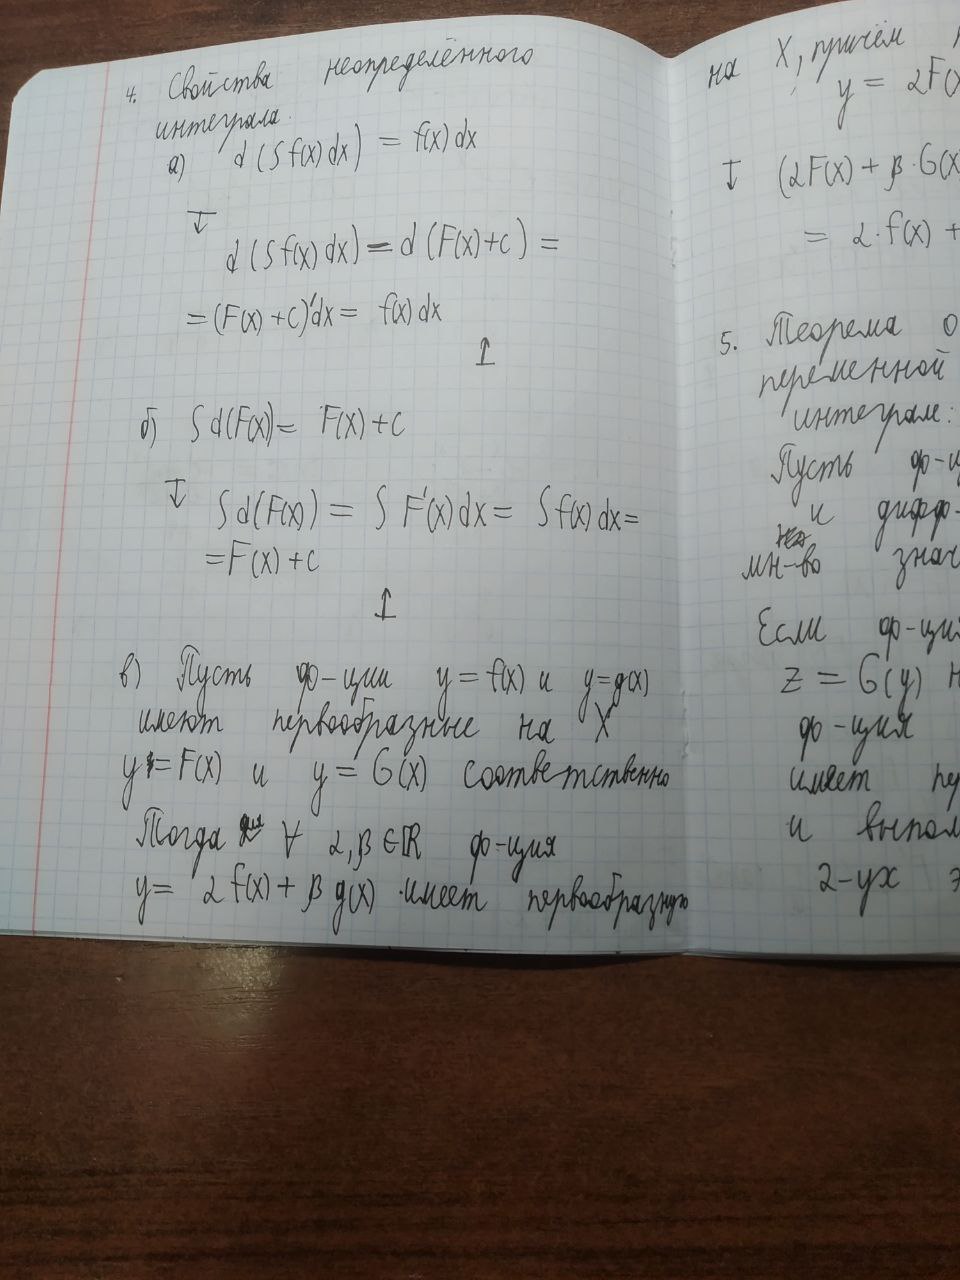 4. Свойства неопределённого
интеграла.
а) d(∫f(x)dx) = f(x)dx
↧
d(∫f(x)dx) = d(F(x)+c) =
= (F(x)+c)'dx = f(x)dx
↥
б) ∫d(F(x)) = F(x)+c
↧
∫d(F(x)) = ∫F'(x)dx = ∫f(x)dx =
= F(x)+c
↥
в) Пусть ф-ции y = f(x) и y=g(x)
имеют первообразные на X
y = F(x) и y = G(x) соответственно
Тогда ∀ α, β ∈ ℝ ф-ция
y = αf(x) + βg(x) имеет первообразную
на X, причём
y = αF(x
↧ (αF(x) + β·G(x
= α·f(x) +
5. Теорема о
переменной
интеграле:
Пусть ф-ц
и дифф-
мн-во знач
Если ф-ци
z = G(y) н
ф-ция
имеет пе
и выпол
2-ух э